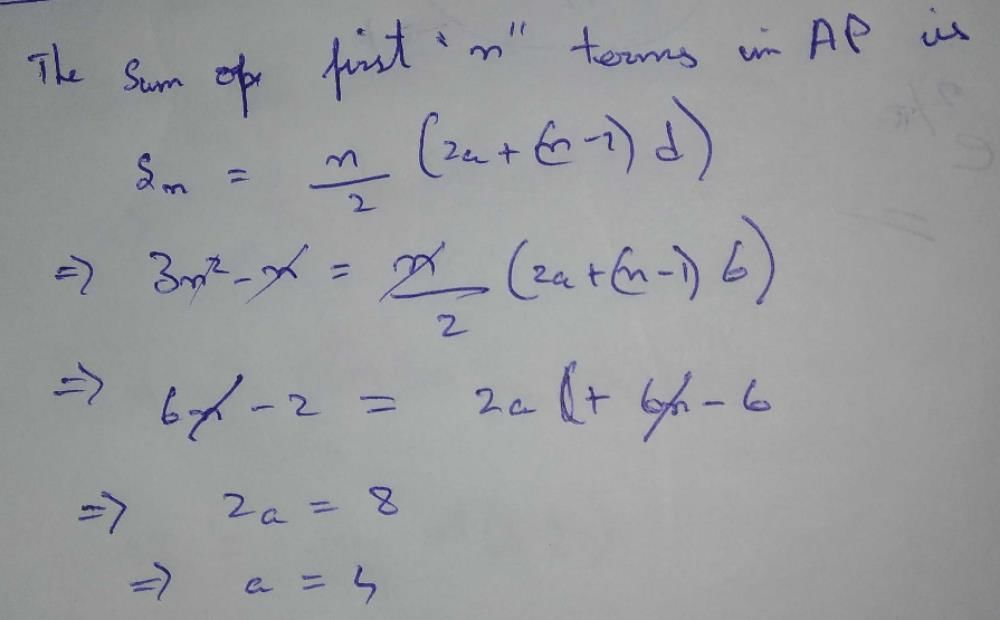 The Sum of first "n" terms in AP is
Sn = n/2 (2a + (n-1) d)
=> 3n² - n = n/2 (2a + (n-1) 6)
=> 6n - 2 = 2a + 6n - 6
=> 2a = 8
=> a = 4